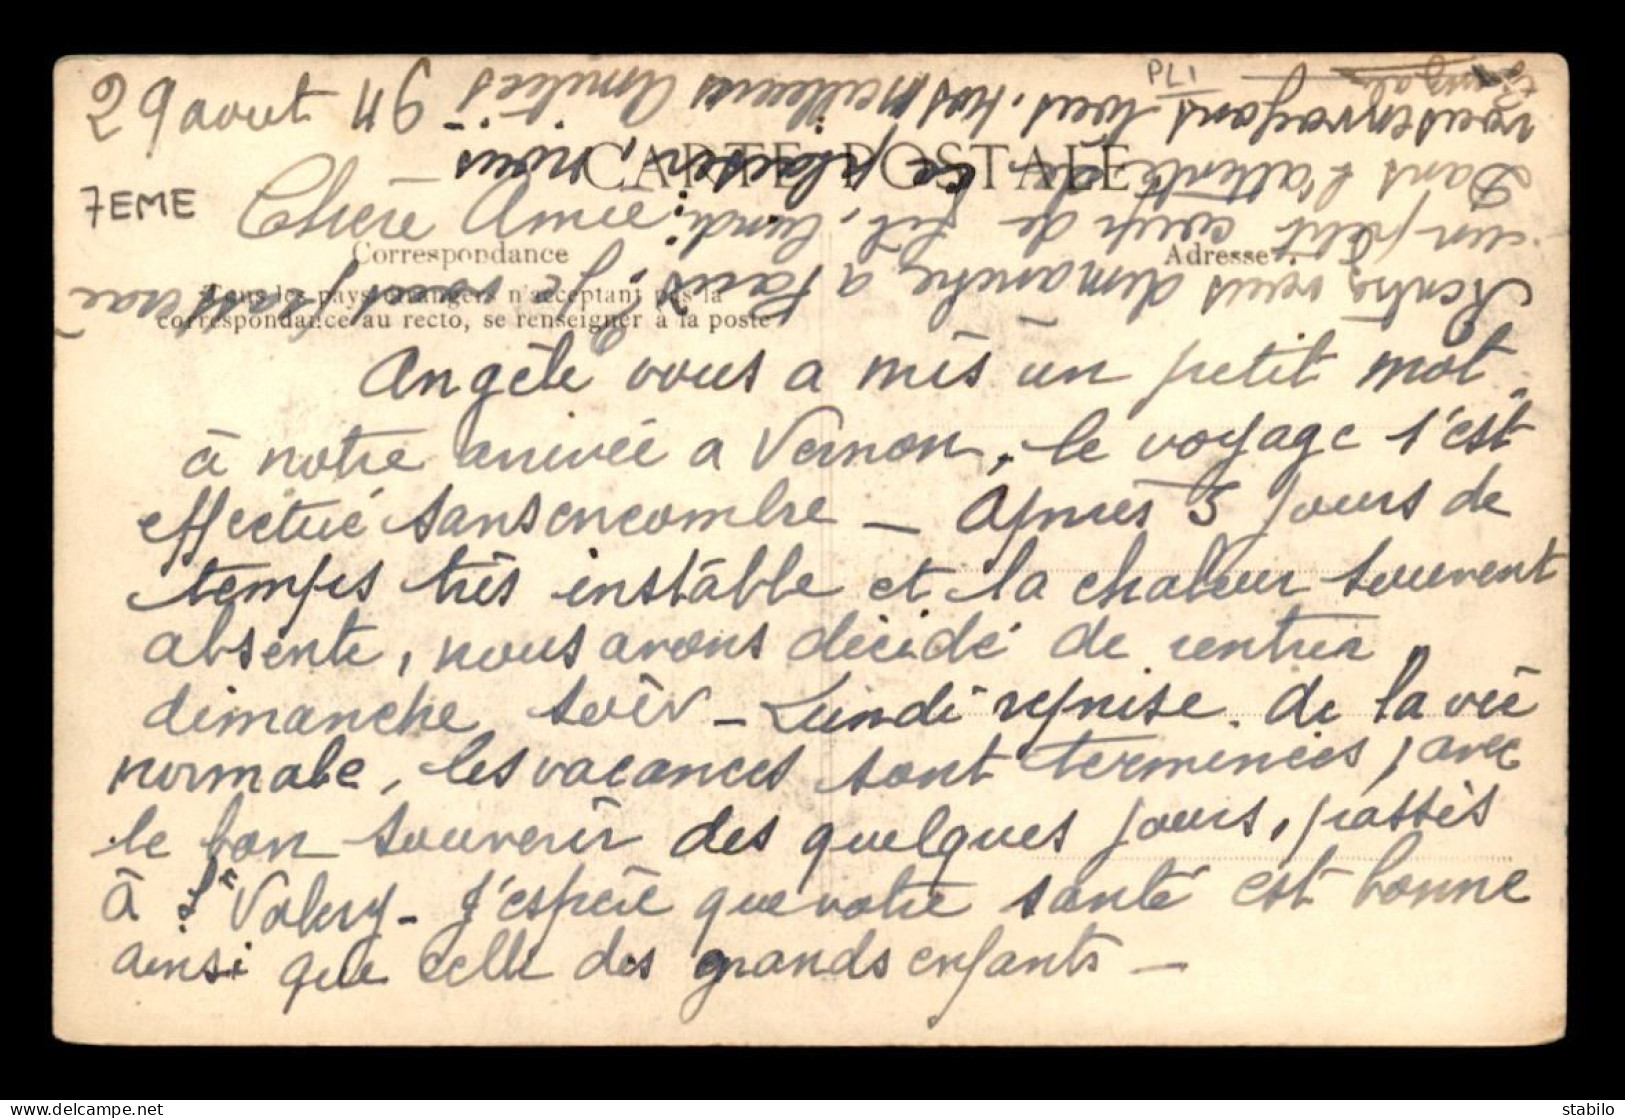 29 aout 911
PLI
CARTE POSTALE
7EME
Chère Amie
Correspondance
Adresse
Tous les pays étrangers n'acceptant pas la
correspondance au recto, se renseigner à la poste
Angèle vous a mis un petit mot,
à notre arrivée a Vernon, le voyage s'est
effectué sans encombre — Après 3 jours de
temps très instable et la chaleur souvent
absente, nous avons décidé de rentrer
dimanche soir — Lundi reprise de la vie
normale, les vacances sont terminées, avec
le bon souvenir des quelques jours, passés
à St Valery - J'espère que votre santé est bonne
ainsi que celle des grands enfants —
Rentrés dimanche a Paris, Je vous passerai
un petit coup de fil, lundi.
Dans l'attente de ce plaisir, nous
vous envoyons tous, nos meilleures amitiés